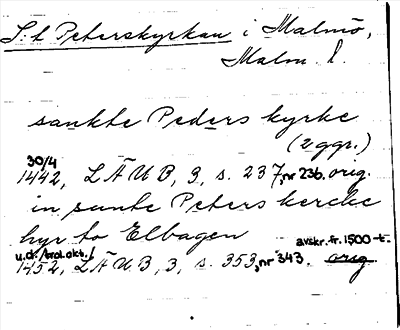 S:t Peterskyrkan i Malmö,
Malm. l.
sankte Peders kyrke
(2 ggr.)
30/4
1442, LÄUB, 3, s. 237, nr 236. orig.
in sante Peters kercke
hyr to Elbagen
u.d. /trol. okt./ avskr. fr. 1500-t.
1452, LÄUB, 3, s. 353, nr 343. orig